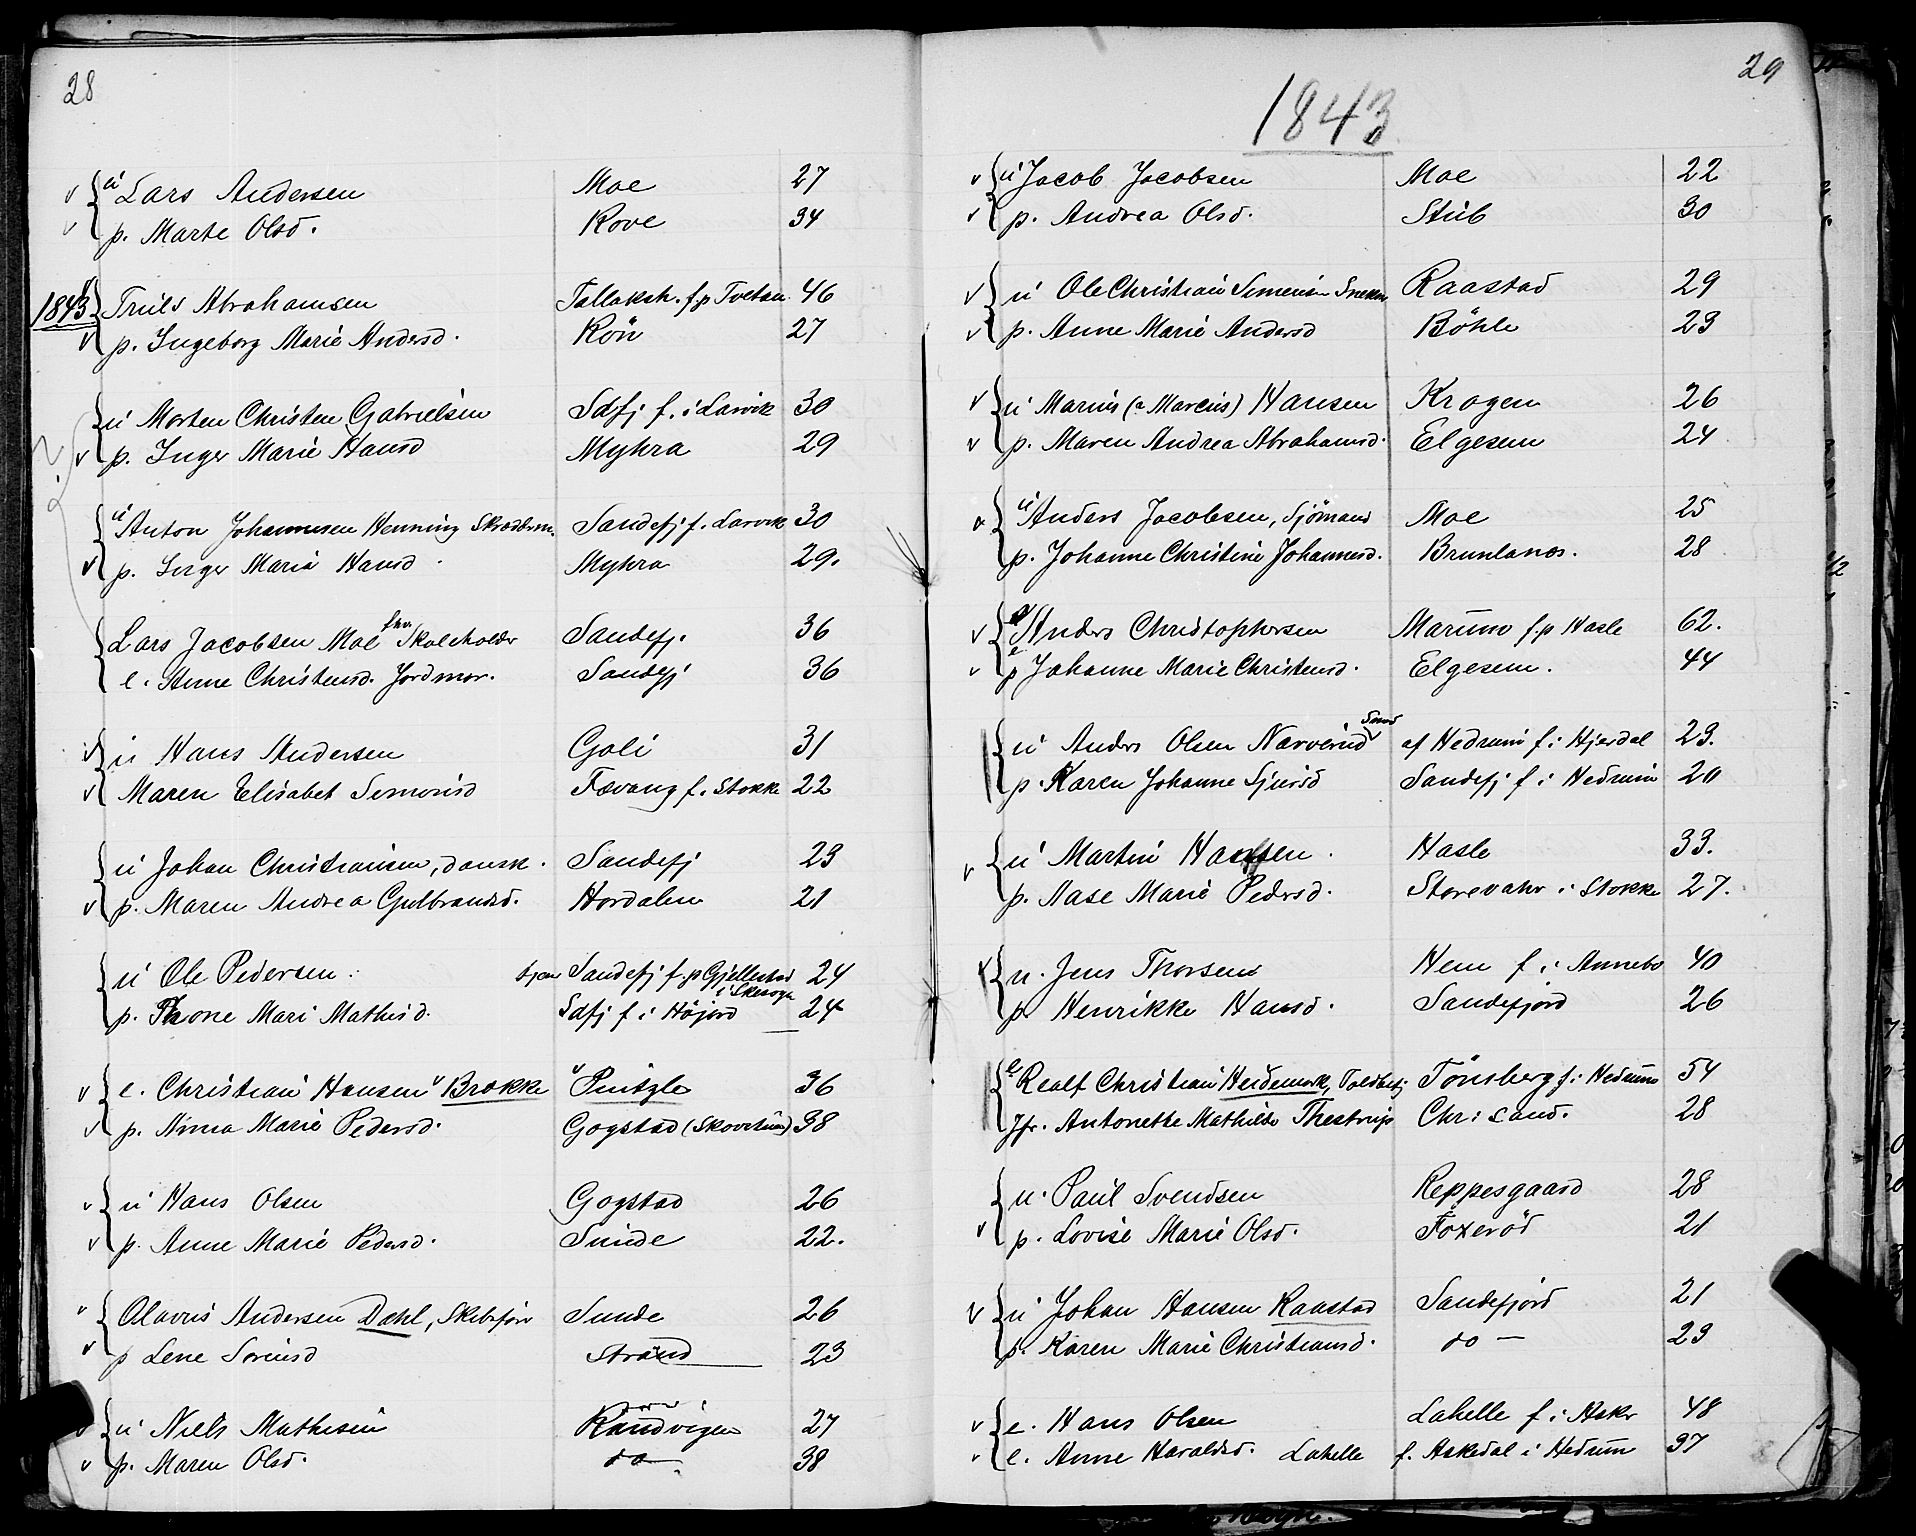 28
u Lars Andersen Moe 27
p. Marte Olsd. Rove 34
1843. Truls Abrahamsen Tallaksh. f. p Tvetan 46
p. Ingeborg Marie Andersd. Rön 27
u Morten Christen Gabrielsen Sdfj f. i Larvik 30
p. Inger Marie Hansd Myhra 29
u Anton Johannesen Henning Skræderm. Sandefj f. Larvik 30
p. Inger Marie Hansd. Myhra 29.
Lars Jacobsen Moe fhv. Skoleholder Sandefj. 36
e. Anne Christensd. Jordmor. Sandefj 36
u Hans Andersen Goli 31
Maren Elisabet Simonsd Fævang f. Stokke 22
u Johan Christiansen, dansk. Sandefj 23
p. Maren Andrea Gulbrandsd. Hordalen 21
u Ole Pedersen. tjen Sandefj f. p Gjellestad i Skesogn 24
p. Thone Mari Mathisd. Sdfj f i Höjord 24
e. Christian Hansen Brokke Puitzle 36
p. Anna Marie Pedersd. Gogstad (Skovstuen) 38
u Hans Olsen Gogstad 26
p. Anne Marie Pedersd. Sunde 22.
Olavus Andersen Dahl, Skibsför Sunde 26
p Lene Sörensd Strand 23
u Niels Mathisen Randvigen 27
p. Maren Olsd. do 38
29
1843
u Jacob Jacobsen Moe 22
p. Andrea Olsd. Stub 30
u Ole Christian Simensen Snekker Raastad 29
p. Anne Marie Andersd Böhle 23
u Marius (a Marcus) Hansen Krogen 26
p. Maren Andrea Abrahamsd. Elgesem 24
u Anders Jacobsen, Sjömand Moe 25
p. Johanne Christine Johannesd. Brunlanes. 28
e Anders Christophersen Marum f. p Hasle 62.
e p Johanne Marie Christensd. Elgesem. 44
u Anders Olsen Narverud Smed af Hedrum f. i Hjerdal 23.
p. Karen Johanne Sjursd Sandefj f i Hedrum 20
u Martin Hansen. Hasle 33.
p. Aase Marie Pedersd. Storevahr i Stokke 27.
u. Jens Thorsen Hem f. i Annebo 40
p. Henrikke Hansd. Sandefjord 26
e Realf Christian Heidemark, Toldbetj Tönsberg f. i Hedrum 54
Jfr. Antonette Mathilde Thestrup Chrisand. 28
u. Paul Svendsen Reppesgaard 28
p. Lovise Marie Olsd. Foxeröd 21
u Johan Hansen Raastad Sandefjord 21
p. Karen Marie Christiansd. do — 23
e. Hans Olsen Lahelle f. i Askr 48
e. Anne Haraldsd. Lahelle f. Askedal i Hedrum 37